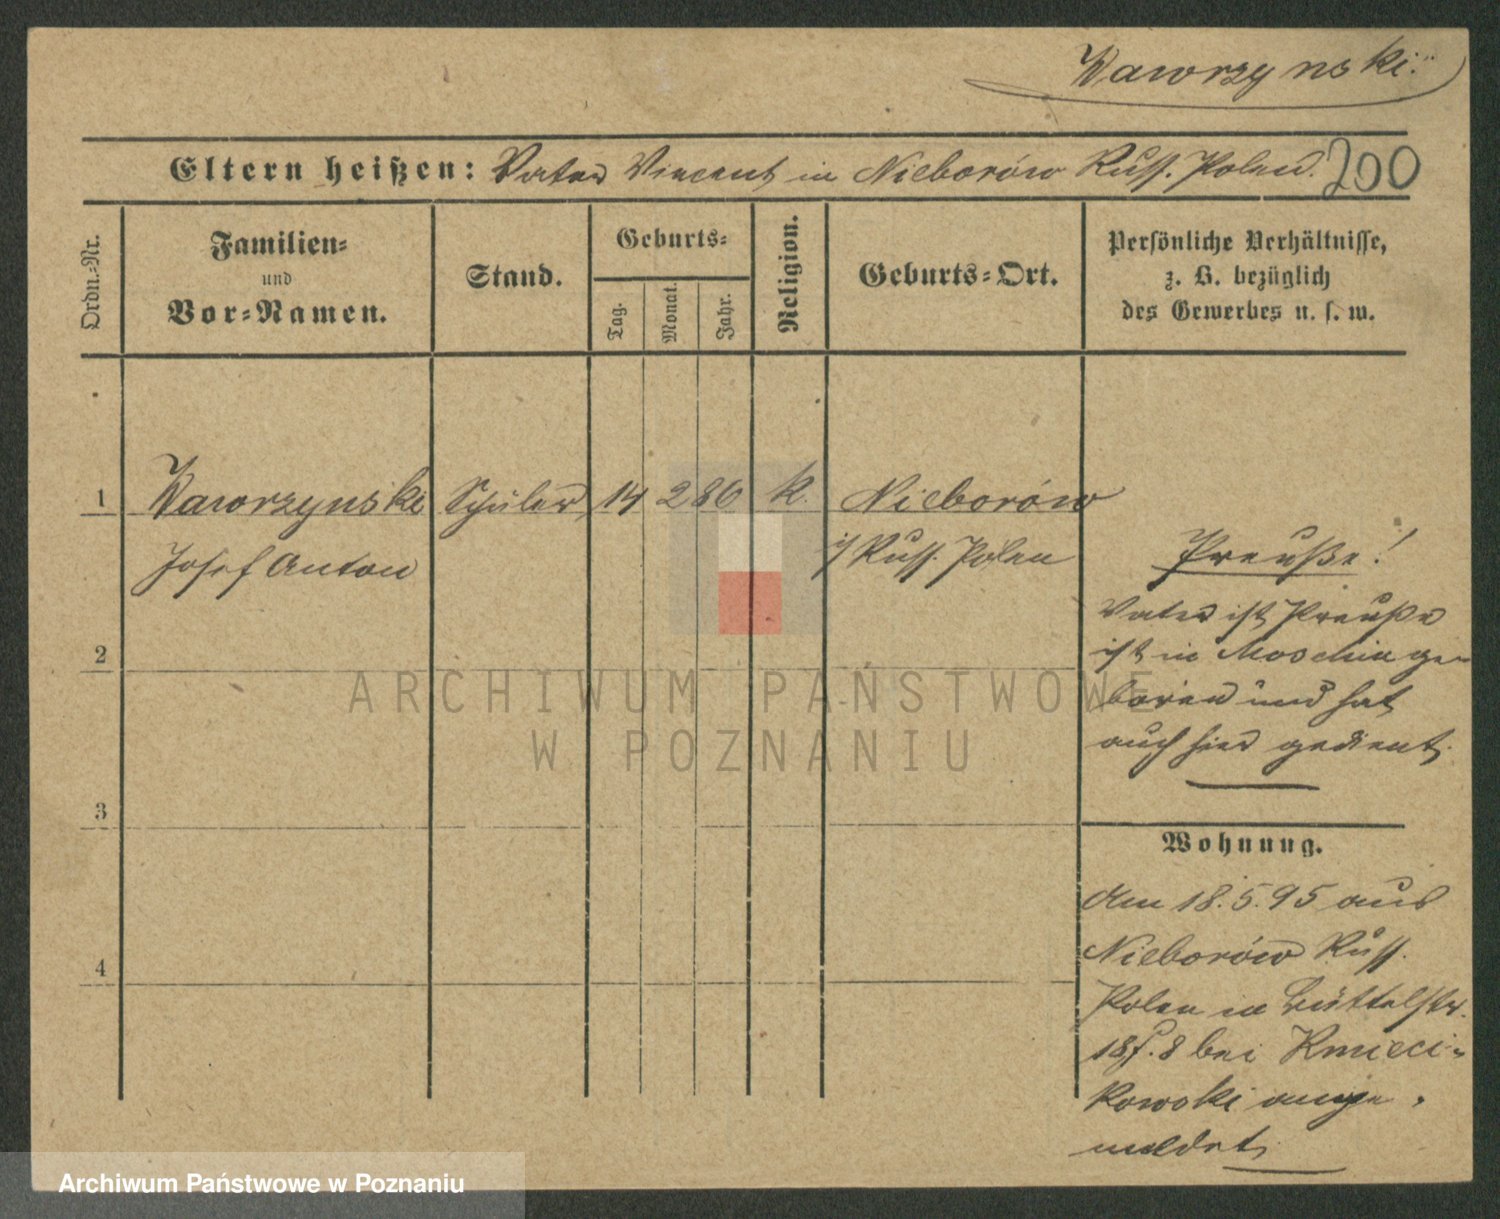 Wawrzynski.
Eltern heißen: Vater Vincent in Nieborów Russ. Polen. 200
Ordn.=Nr.
Familien=
und
Vor=Namen.
Stand.
Geburts=
Tag.
Monat.
Jahr.
Religion.
Geburts=Ort.
Persönliche Verhältnisse,
z. B. bezüglich
des Gewerbes u. s. w.
1 Wawrzynski Schüler 14 2 86 k. Nieborów
Josef Anton i/ Russ. Polen
Preuße!
Vater ist Preuße
ist in Moschin ge-
boren und hat
auch hier gedient.
2
3
4
Wohnung.
Am 18.5.95 aus
Nieborów Russ.
Polen in Büttelstr.
18 8 bei Kmieci-
kowski ange-
meldet.
ARCHIWUM PAŃSTWOWE
W POZNANIU
Archiwum Państwowe w Poznaniu